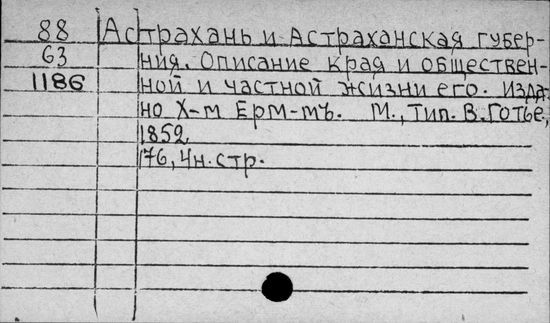 88 Астрахань и Астраханская губер-
63 ния. Описание края и обществен-
1186 ной и частной жизни его. Изда-
но Х-м Ерм-мъ. М., Тип. В. Готье,
1852
176, 4н. стр.